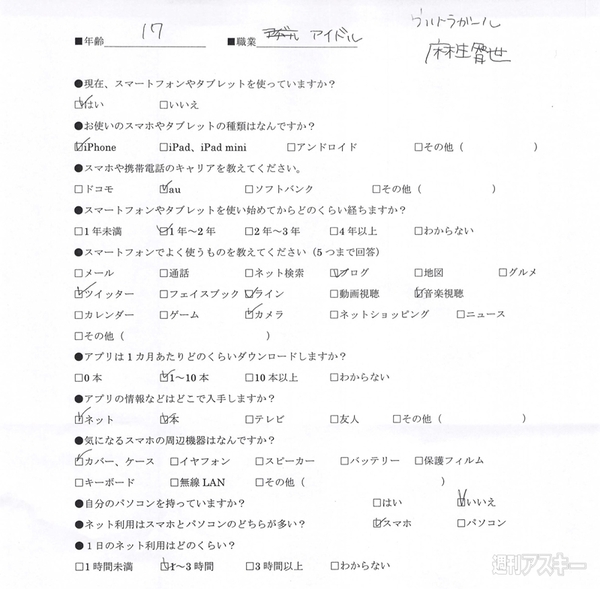 ウルトラガール
麻生智世
■年齢 17 ■職業 アイドル
●現在、スマートフォンやタブレットを使っていますか?
□はい □いいえ
●お使いのスマホやタブレットの種類はなんですか?
□iPhone □iPad、iPad mini □アンドロイド □その他( )
●スマホや携帯電話のキャリアを教えてください。
□ドコモ □au □ソフトバンク □その他( )
●スマートフォンやタブレットを使い始めてからどのくらい経ちますか?
□1年未満 □1年〜2年 □2年〜3年 □4年以上 □わからない
●スマートフォンでよく使うものを教えてください(5つまで回答)
□メール □通話 □ネット検索 □ブログ □地図 □グルメ
□ツイッター □フェイスブック □ライン □動画視聴 □音楽視聴
□カレンダー □ゲーム □カメラ □ネットショッピング □ニュース
□その他( )
●アプリは1カ月あたりどのくらいダウンロードしますか?
□0本 □1〜10本 □10本以上 □わからない
●アプリの情報などはどこで入手しますか?
□ネット □本 □テレビ □友人 □その他( )
●気になるスマホの周辺機器はなんですか?
□カバー、ケース □イヤフォン □スピーカー □バッテリー □保護フィルム
□キーボード □無線LAN □その他( )
●自分のパソコンを持っていますか? □はい □いいえ
●ネット利用はスマホとパソコンのどちらが多い? □スマホ □パソコン
●1日のネット利用はどのくらい?
□1時間未満 □1〜3時間 □3時間以上 □わからない
週刊アスキー